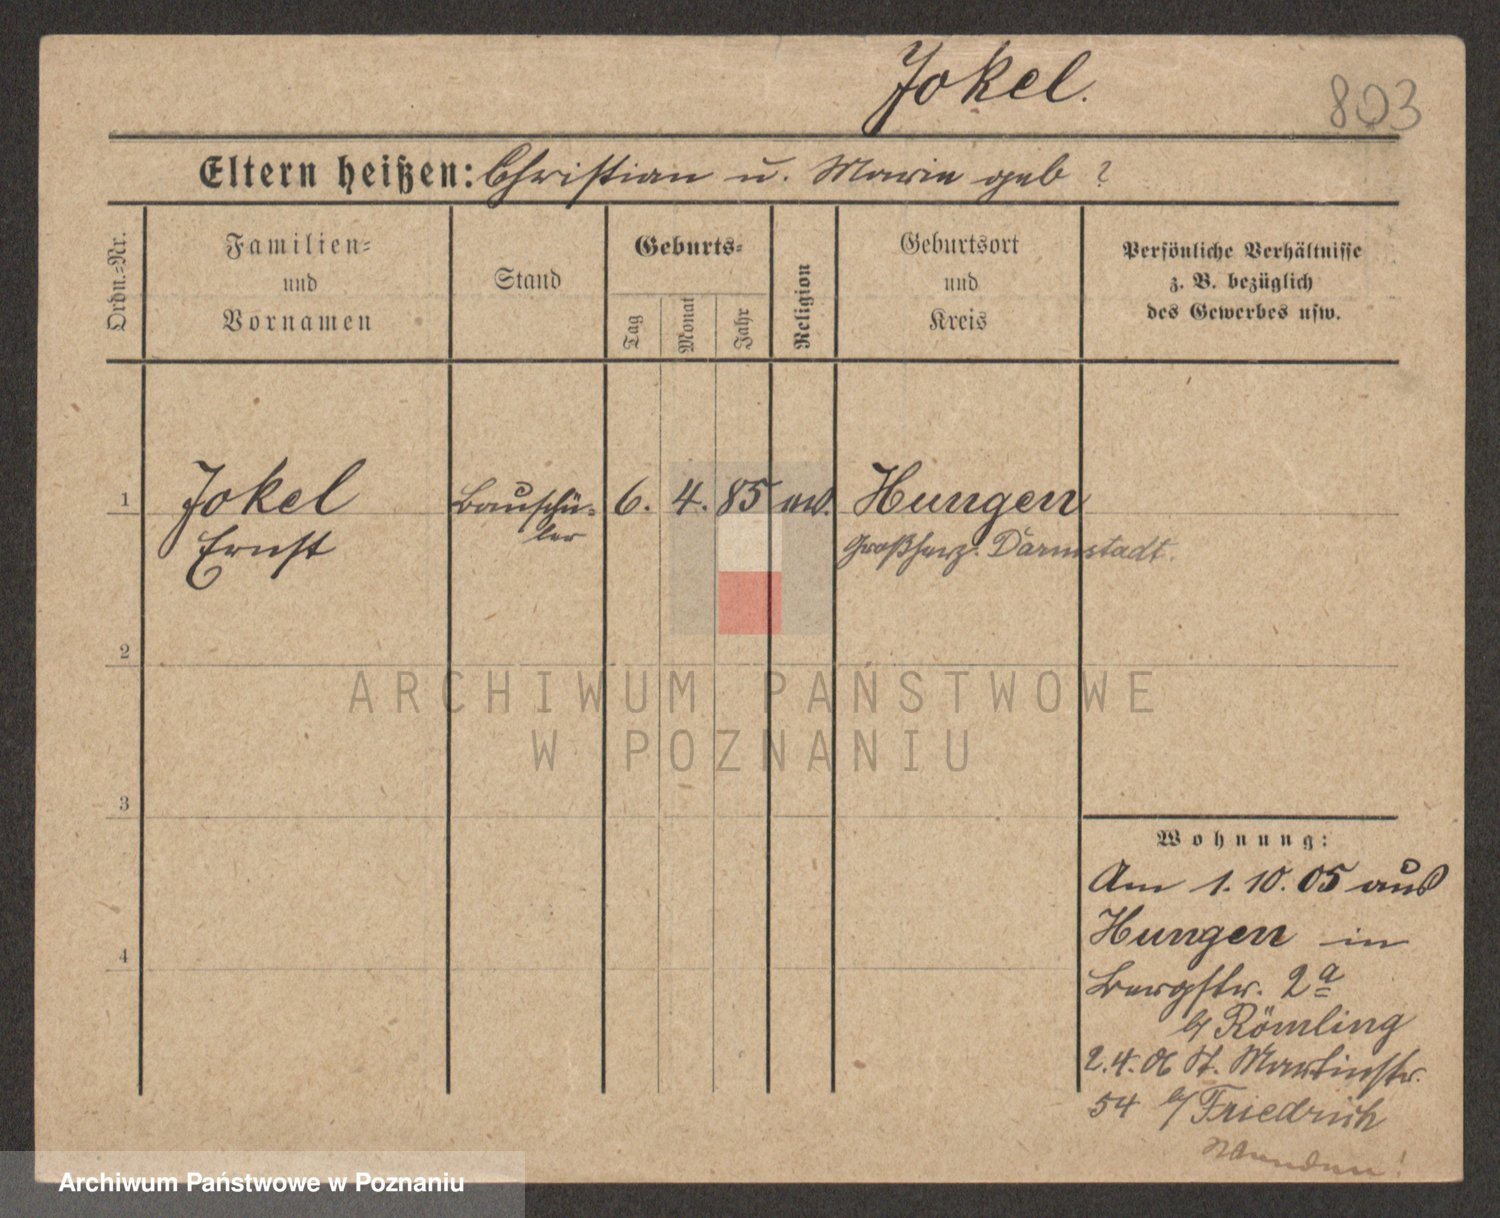 Jokel.
803
Eltern heißen: Christian u. Marie geb ?
Ordn.=Nr.
Familien=
und
Vornamen
Stand
Geburts=
Tag
Monat
Jahr
Religion
Geburtsort
und
Kreis
Persönliche Verhältnisse
z. B. bezüglich
des Gewerbes usw.
1 Jokel Bauschü- 6. 4. 85 ev. Hungen
ler
Ernst Großherz. Darmstadt.
2
ARCHIWUM PAŃSTWOWE
W POZNANIU
3
Wohnung:
Am 1. 10. 05 aus
4
Hungen in
Bergstr. 2a
b/ Römling
2. 4. 06 St. Martinstr.
54 b/ Friedrich
Wenden!
Archiwum Państwowe w Poznaniu